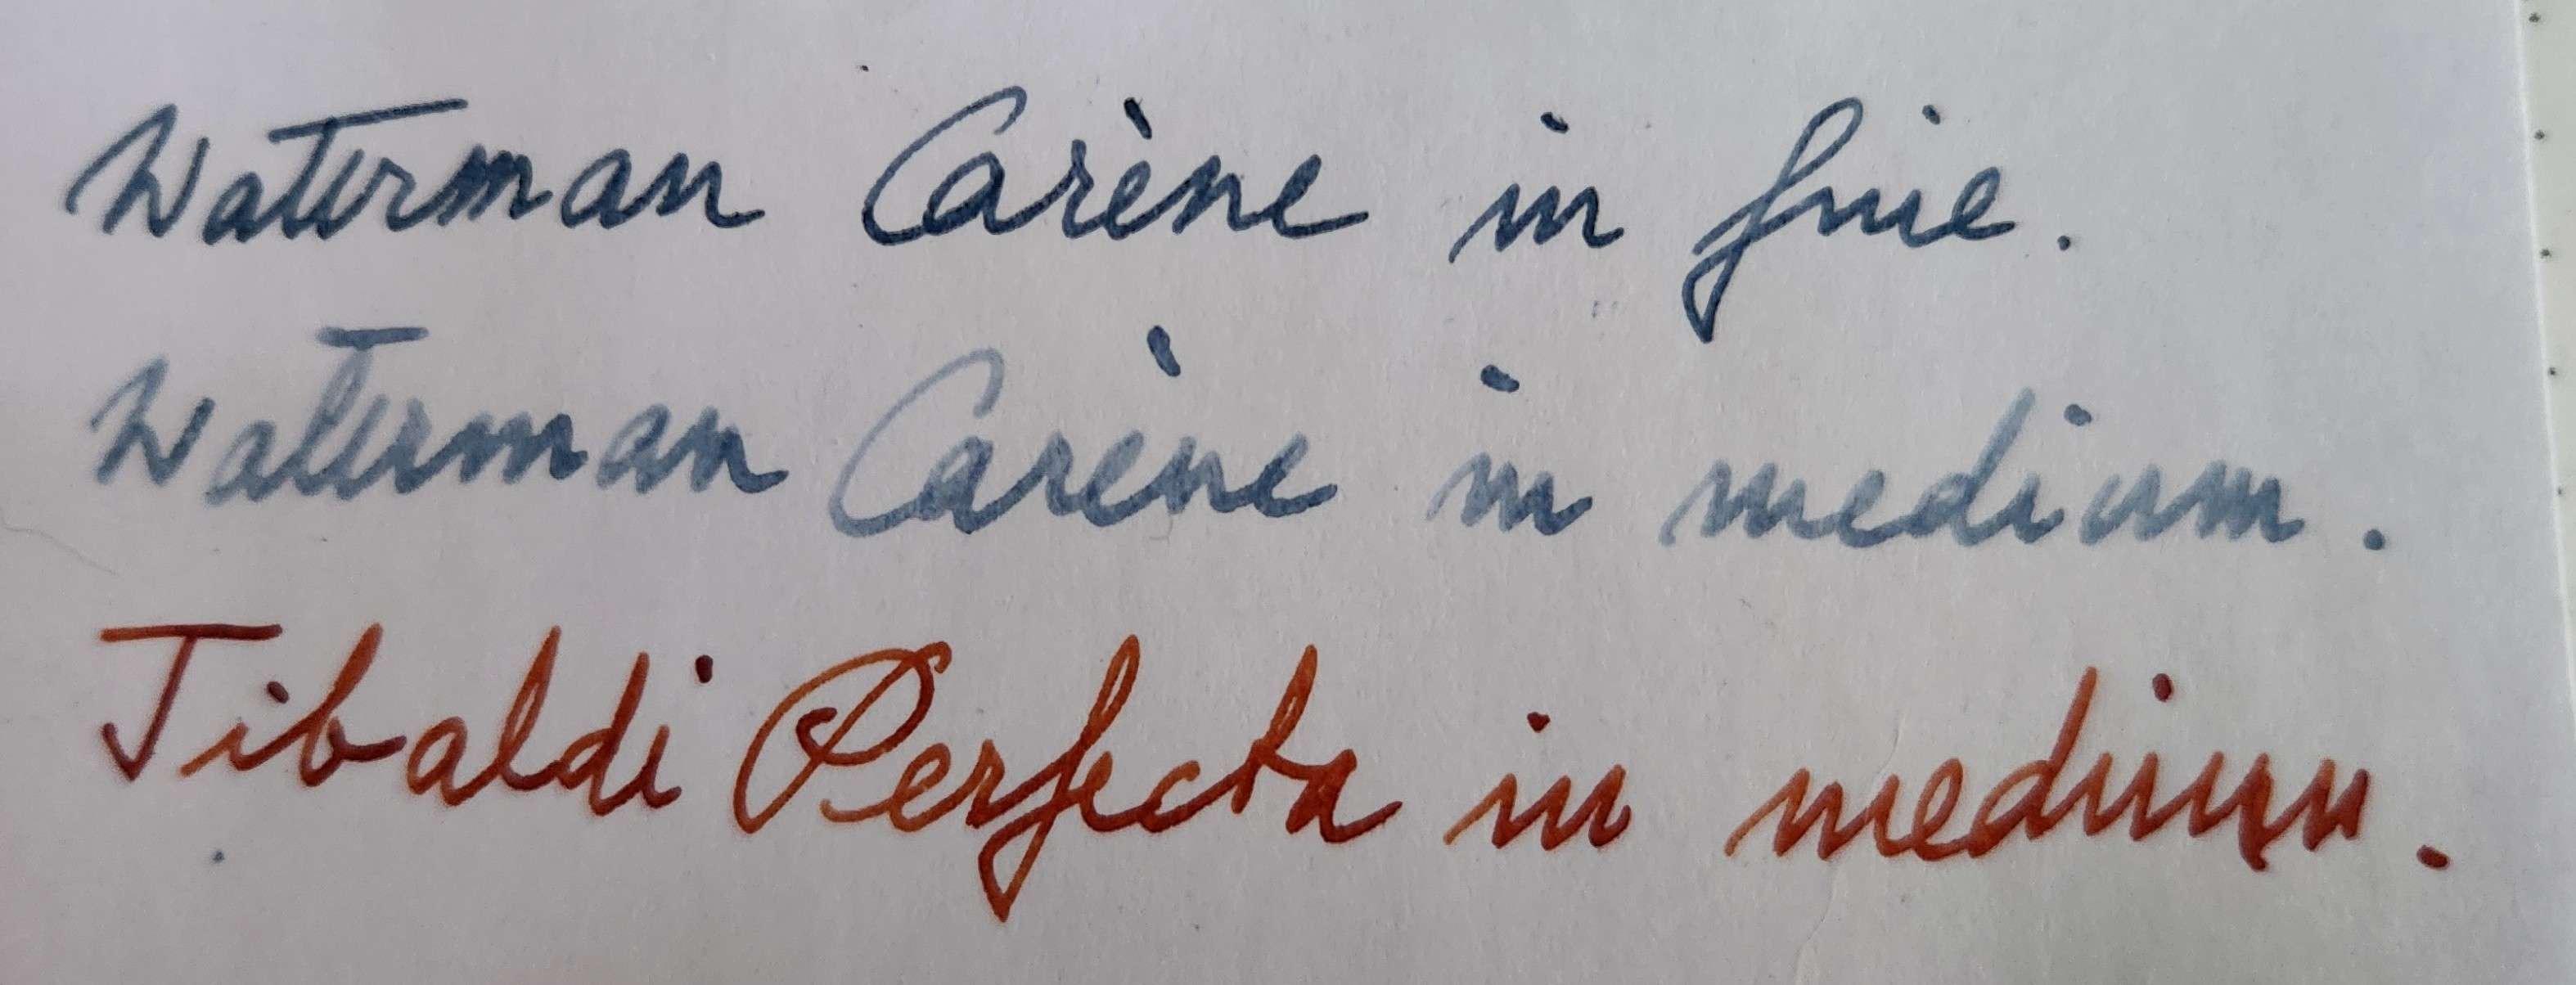 Waterman Carène in fine.
Waterman Carène in medium.
Tibaldi Perfecta in medium.